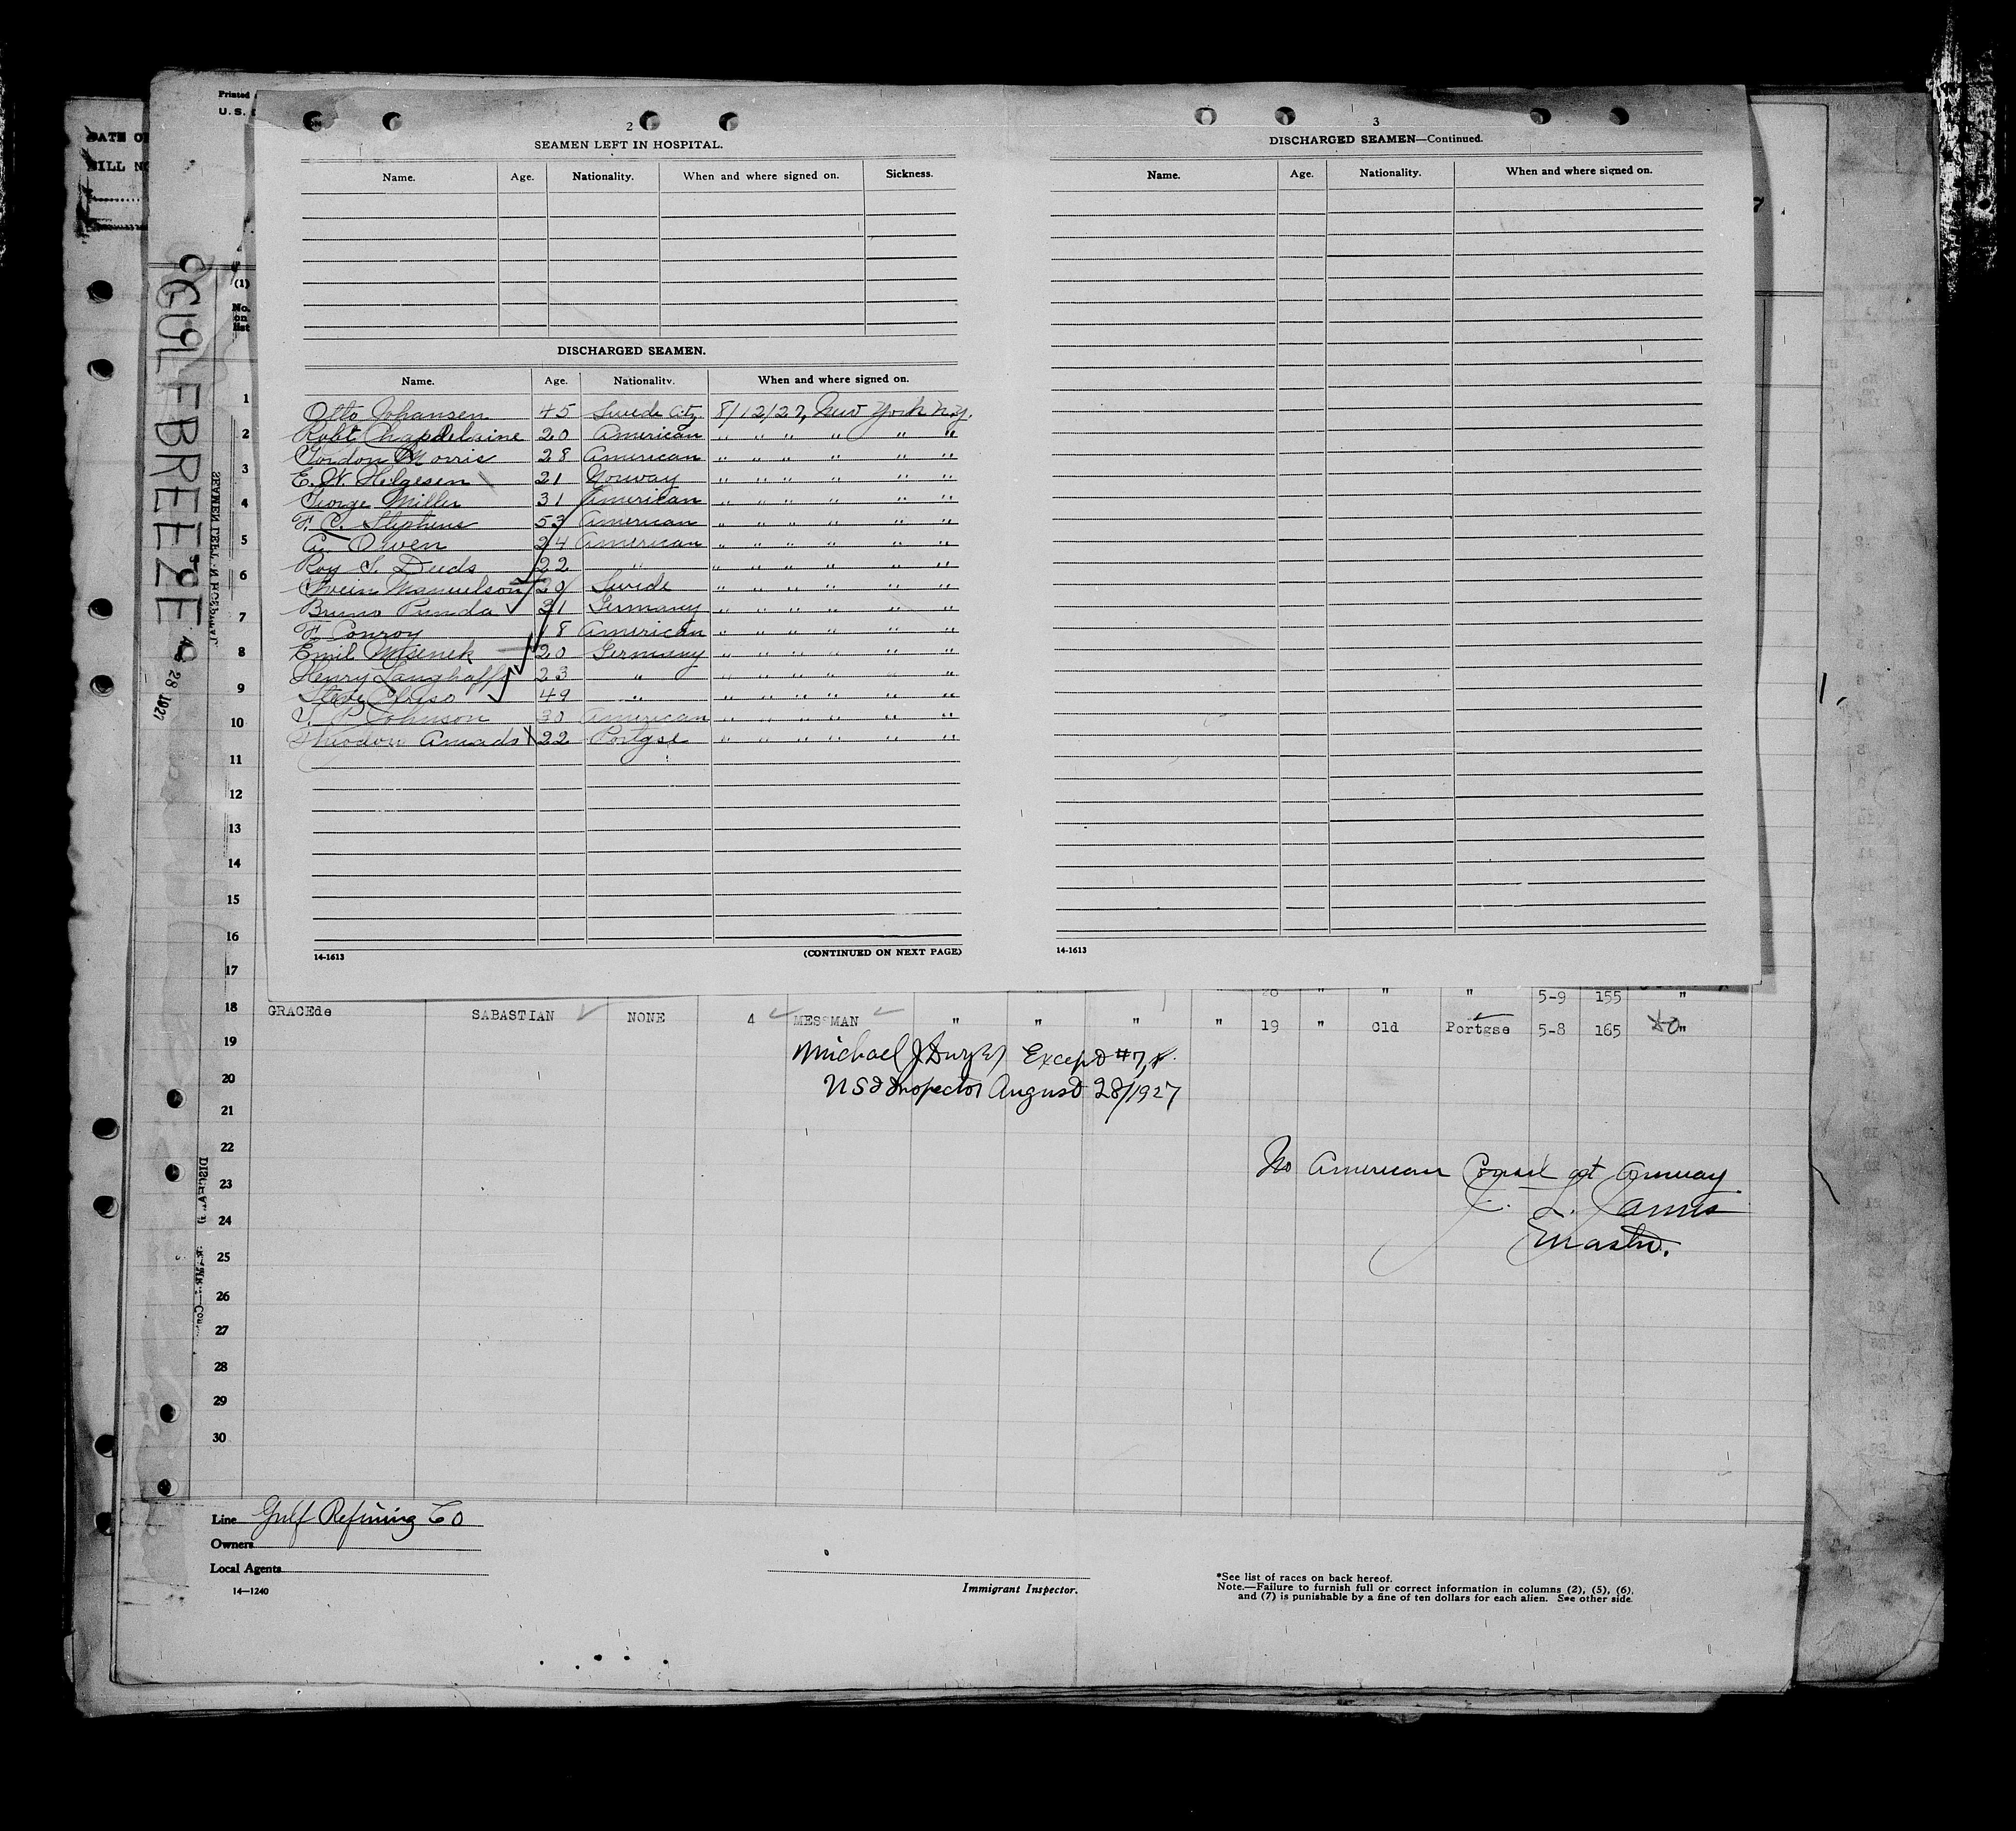 Printed
U. S.
DATE OF
BILL NO
2
SEAMEN LEFT IN HOSPITAL.
Name. Age. Nationality. When and where signed on. Sickness.
DISCHARGED SEAMEN.
Name. Age. Nationality. When and where signed on.
Otto Johansen 45 Swede Citz 8/12/27, New York N.Y.
Robt Chapdelaine 20 American " " " " " "
Gordon Morris 28 American " " " " " "
E. W. Helgesen 21 Norway " " " " " "
George Miller 31 American " " " " " "
F. C. Stephens 53 American " " " " " "
A. Owen 24 American " " " " " "
Roy S. Deeds 22 " " " " " " "
Svein Manuelson 20 Swede " " " " " "
Bruno Punda 31 Germany " " " " " "
F. Conroy 18 American " " " " " "
Emil Misenek 20 Germany " " " " " "
Henry Langhoff 23 " " " " " " "
Steve 49 " " " " " " "
J. P. Johnson 30 American " " " " " "
Theodore Amads 22 Portgse " " " " " "
14-1613 (CONTINUED ON NEXT PAGE)
3
DISCHARGED SEAMEN—Continued.
Name. Age. Nationality. When and where signed on.
14-1613
GULFBREEZE
28 1927
(1)
No.
on
list
1
2
3
4
5
6
7
8
9
10
11
12
13
14
15
16
17
" " " 5-9 155 "
18 GRACEde SABASTIAN NONE 4 MESSMAN " " " " 19 " Cld Portgse 5-8 165 "
19
20
21
22
23
24
25
26
27
28
29
30
Michael J Dwyer Except #7,
US Inspector August 28/1927
No American Consul at Conway
J. L. James
Master.
Line Gulf Refining Co
Owners
Local Agents
14—1240
Immigrant Inspector.
*See list of races on back hereof.
Note.—Failure to furnish full or correct information in columns (2), (5), (6),
and (7) is punishable by a fine of ten dollars for each alien. See other side.